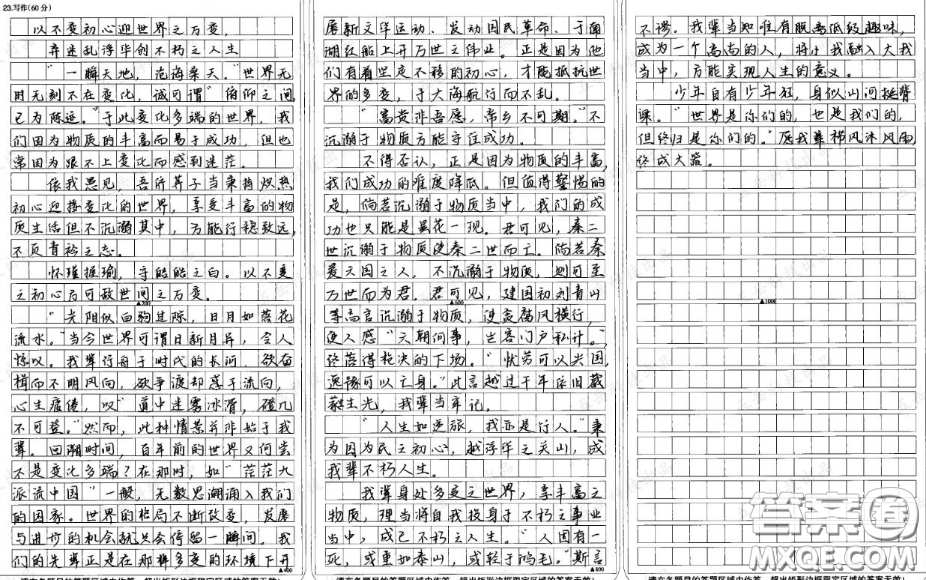 23.写作(60分)
以不变初心迎世界之万变,
弃迷乱浮华创不朽之人生
"一瞬天地,沧海桑天。"世界无
时无刻不在变化,诚可谓"俯仰之间,
已为陈迹。"于此变化多端的世界,我
们因为物质的丰富而易于成功,但也
常因为跟不上变化而感到迷茫。
依我愚见,吾所荠子当秉持炽热
初心迎接变化的世界,享受丰富的物
质生活但不沉溺其中,方能行稳致远,
不负青衿之志。
怀瑾握瑜,守皓皓之白。以不变
之初心方可敌世间之万变。
▲200
"光阴似白驹过隙,日月如落花
流水。"当今世界可谓日新月异,令人
惊叹。我辈行舟于时代的长河,欲奋
楫而不明风向,欲争渡却惑于流向,
心生疲倦,叹"道中迷雾冰滑,磴几
不可登。"然而,此种情景并非始于我
辈。回溯时间,百年前的世界又何尝
不是变化多端?在那时,如"茫茫九
派流中国"一般,无数思潮涌入我们
的国家。世界的格局不断改变,发展
与进步的机会就只会停留一瞬间。我
们的先辈正是在那样多变的环境下开
▲400
请在各题目的答题区域内作答,超出矩形边框限定区域的答案无效!
展新文华运动、发动国民革命、于南
湖红船上开万世之伟业。正是因为他
们有着坚定不移的初心,才能抵抗世
界的多变,于大海航行而不乱。
"富贵非吾愿,帝乡不可期。"不
沉溺于物质方能守住成功。
不得否认,正是因为物质的丰富,
我们成功的难度降低。但值得警惕的
是,倘若沉溺于物质当中,我们的成
功也只能是昙花一现。君可见,秦二
世沉溺于物质使秦二世而亡。倘若秦
爱六国之人,不沉溺于物质,则可至
万世而为君。君可见,建国初刘青山
▲600
等高官沉溺于物质,使贪腐风横行,
使人感"天朝何事,岂客门户私计。"
终落得枪决的下场。"忧劳可以兴国,
逸豫可以亡身。"此言越过千年依旧葳
蕤生光,我辈当牢记。
"人生如逆旅,我亦是行人。"秉
为国为民之初心,越浮华之关山,成
我辈不朽人生。
我辈身处多变之世界,享丰富之
物质,理当将自我投身于不朽之事业
当中,成己不朽之人生。"人固有一
死,或重如泰山,或轻于鸿毛。"斯言
▲800
请在各题目的答题区域内作答,超出矩形边框限定区域的答案无效!
不谬。我辈当知唯有脱离低级趣味,
成为一个高尚的人,将小我融入大我
当中,方能实现人生的意义。
少年自有少年狂,身似山河挺脊
梁。"世界是你们的,也是我们的,
但终归是你们的。"愿我辈栉风沐风雨,
终成大器。
▲1000
请在各题目的答题区域内作答,超出矩形边框限定区域的答案无效!
答案圈
MXQE.COM